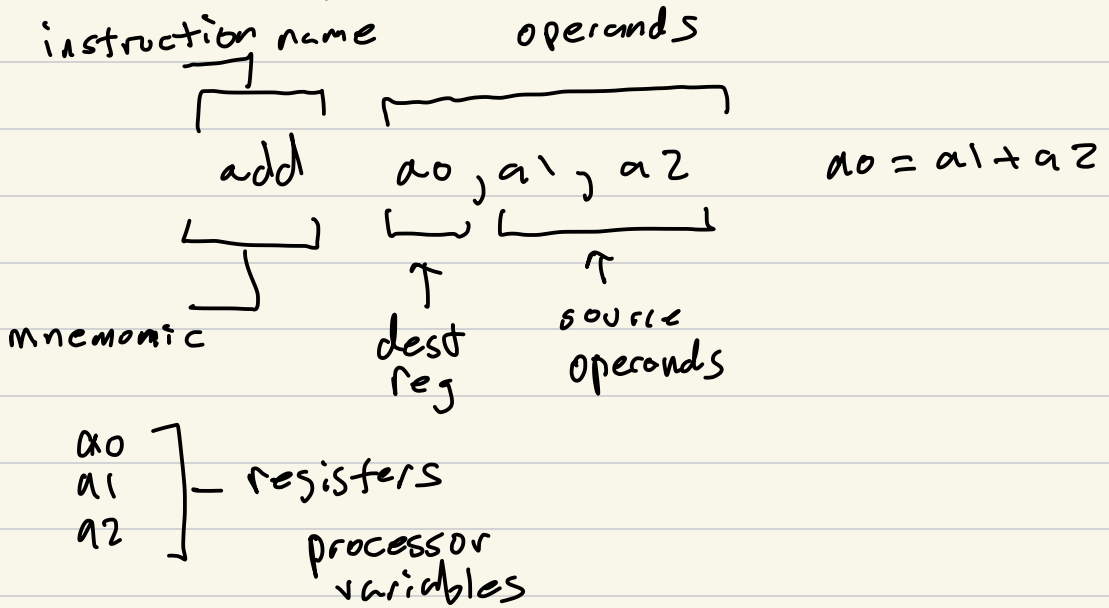 instruction name operands
add a0, a1, a2 a0 = a1 + a2
mnemomic
dest
reg
source
operands
a0
a1
a2
registers
processor
variables